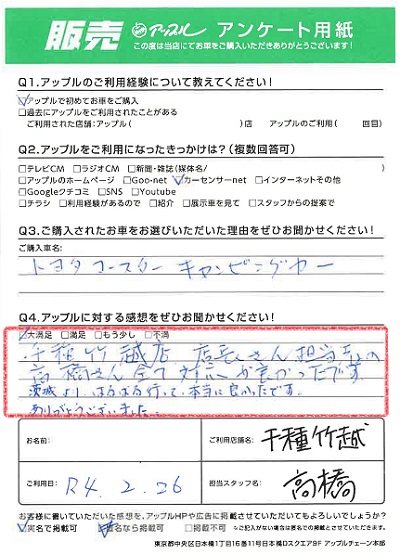 販売 アップル アンケート用紙
この度は当店にてお車をご購入いただきありがとうございます!
Q1.アップルのご利用経験について教えてください!
☑アップルで初めてお車をご購入
□過去にアップルをご利用されたことがある
ご利用された店舗:アップル( )店 アップルのご利用( 回目)
Q2.アップルをご利用になったきっかけは?(複数回答可)
□テレビCM □ラジオCM □新聞・雑誌(媒体名/ )
□アップルのホームページ □Goo-net ☑カーセンサーnet □インターネットその他
□Googleクチコミ □SNS □Youtube
□チラシ □利用経験があるので □紹介 □展示車を見て □スタッフからの提案で
Q3.ご購入されたお車をお選びいただいた理由をぜひお聞かせください!
ご購入車名:
トヨタコースター キャンピングカー
Q4.アップルに対する感想をぜひお聞かせください!
☑大満足 □満足 □もう少し □不満
千種竹越店 店長さん 担当者の
高橋さん全て対応が良かったです
茨城より、はるばる行って、本当に良かったです。
ありがとうございました..
お名前: ご利用店舗名: 千種竹越
ご利用日: R4.2.26 担当スタッフ名: 高橋
お客様に書いていただいた感想を、アップルHPや広告に掲載させていただいてもよろしいでしょうか?
☑実名で掲載可 ☑匿名なら掲載可 □掲載不可 ※ご記入がない場合は匿名での掲載とさせていただきます。
東京都中央区日本橋1丁目16番11号日本橋Dスクエア9F アップルチェーン本部